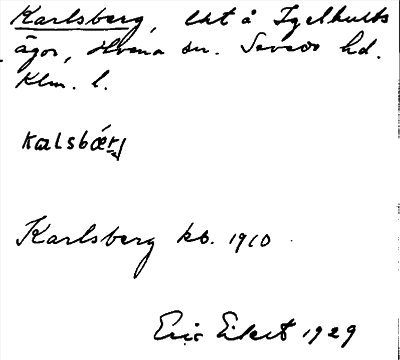 Karlsberg, lht å Igelhults
ägor, Hvena sn. Sevede hd.
Klm. l.
Kalsbǽrj
Karlsberg kb. 1910
Eric Elert 1929